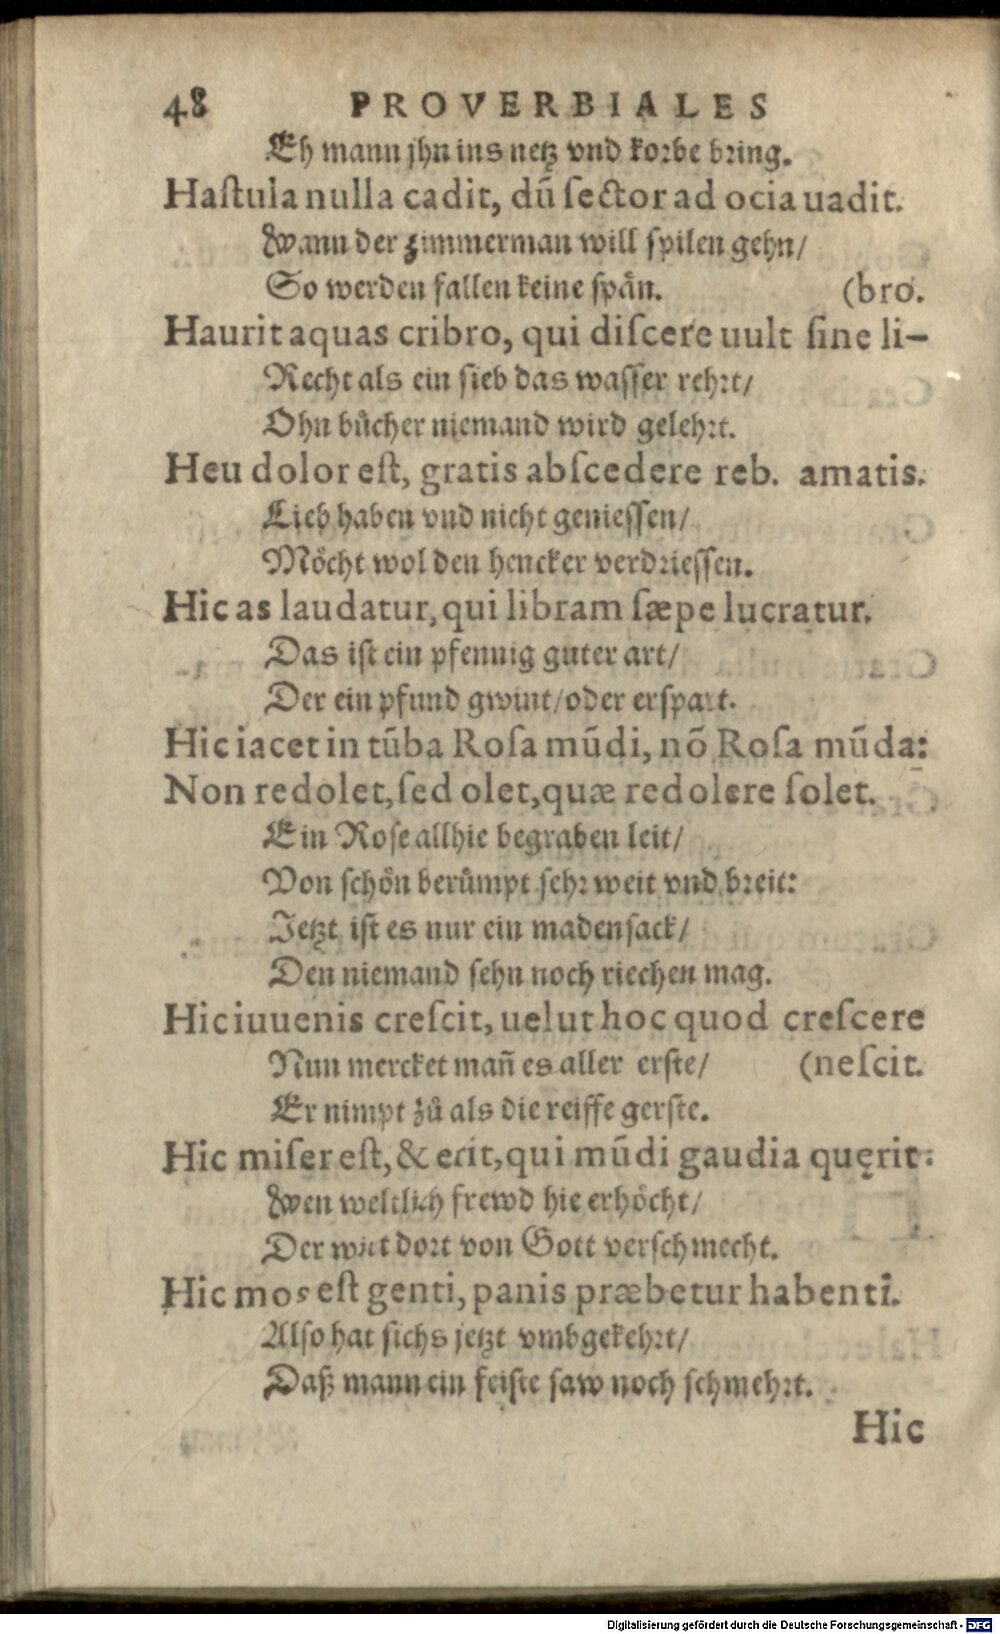 48 PROVERBIALES
Eh mann jhn ins netz vnd korbe bring.
Haſtula nulla cadit, dū ſector ad ocia uadit.
Wann der zimmerman will ſpilen gehn/
So werden fallen keine ſpån. (bro.
Haurit aquas cribro, qui diſcere uult ſine li-
Recht als ein ſieb das waſſer rehrt/
Ohn bůcher niemand wird gelehrt.
Heu dolor eſt, gratis abſcedere reb. amatis.
Lieb haben vnd nicht genieſſen/
Mȯcht wol den hencker verdrieſſen.
Hic as laudatur, qui libram ſæpe lucratur.
Das iſt ein pfennig guter art/
Der ein pfund gwint/ oder erſpart.
Hic iacet in tūba Roſa mūdi, nō Roſa mūda:
Non redolet, ſed olet, quæ redolere ſolet.
Ein Roſe allhie begraben leit/
Von ſchȯn berůmpt ſehr weit vnd breit:
Jetzt iſt es nur ein madenſack/
Den niemand ſehn noch riechen mag.
Hic iuuenis creſcit, uelut hoc quod creſcere
Nun mercket mañ es aller erſte/ (neſcit.
Er nimpt zů als die reiffe gerſte.
Hic miſer eſt, & erit, qui mūdi gaudia quęrit:
Wen weltlich frewd hie erhȯcht/
Der wirt dort von Gott verſchmecht.
Hic mos eſt genti, panis præbetur habenti.
Alſo hat ſichs jetzt vmbgekehrt/
Daß mann ein feiſte ſaw noch ſchmehrt.
Hic
Digitalisierung gefördert durch die Deutsche Forschungsgemeinschaft - DFG